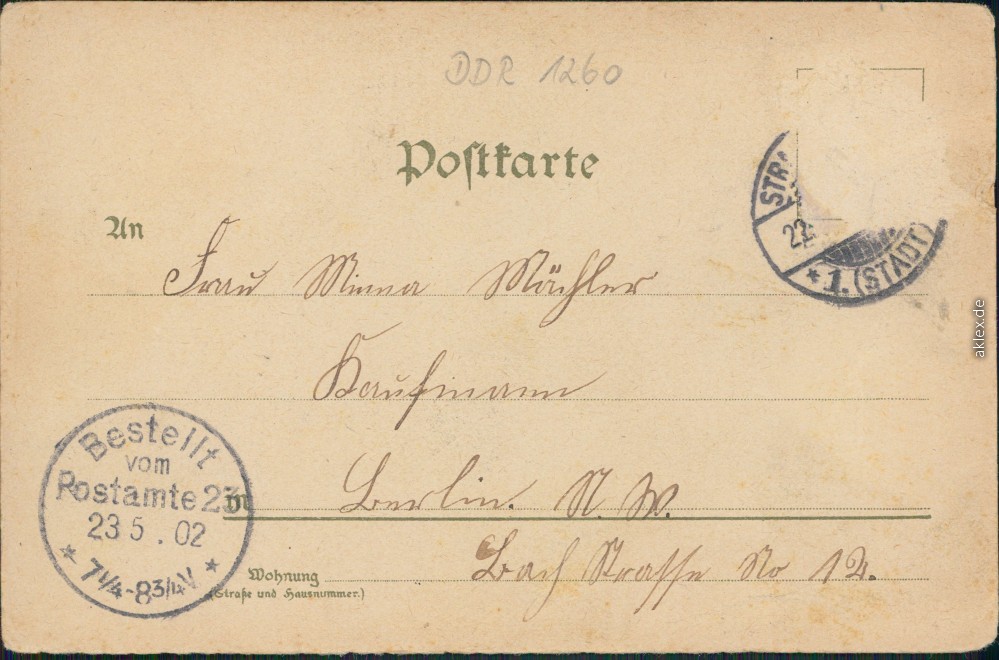 DDR 1260
Postkarte
STRA
22.
* 1. (STADT)
An
Frau Minna Mächler
Kaufmann
Bestellt
vom
Postamte 23
23 5 . 02
* 7 1/4 - 8 3/4 V *
in Berlin. N. W.
Wohnung Bach Strasse No 12.
(Straße und Hausnummer.)
aklex.de